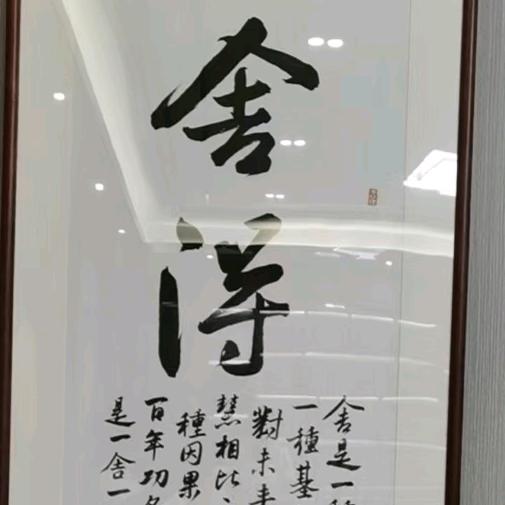 舍得
舍是一種
一種基
對未来
慧相比
種因果
百年功名
是一舍一